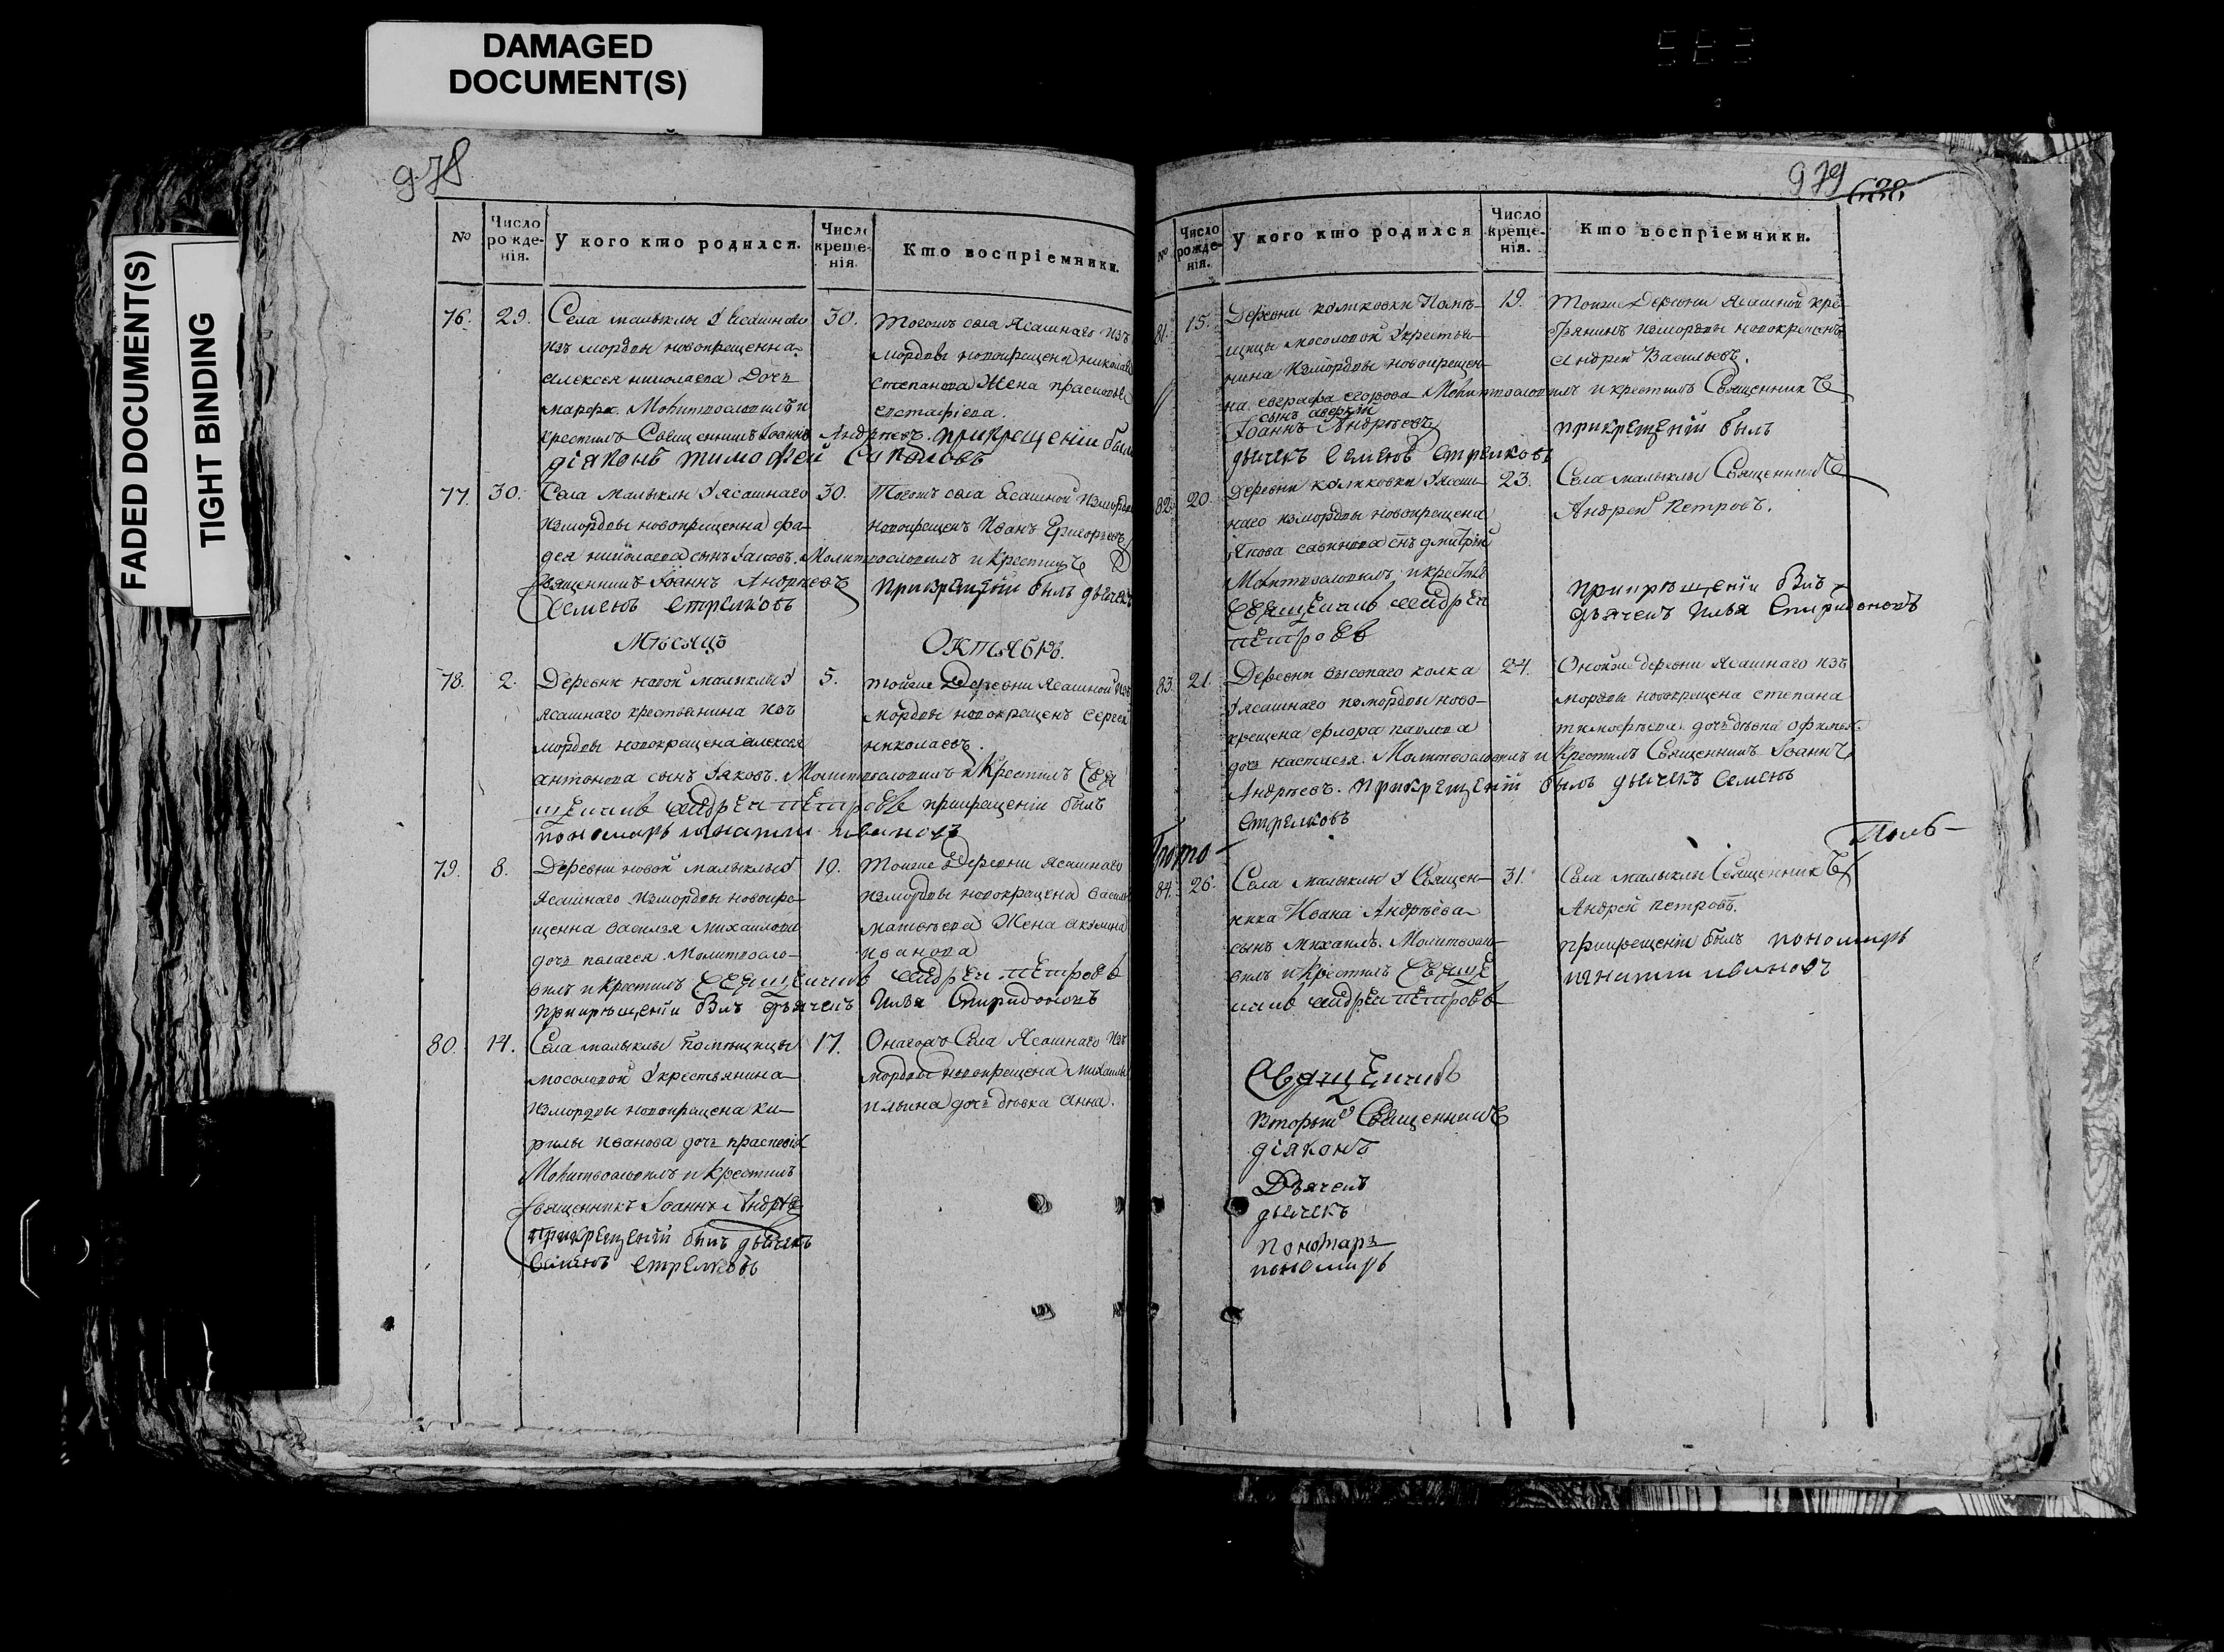 DAMAGED
DOCUMENT(S)
FADED DOCUMENT(S)
TIGHT BINDING
978
№
Число рожденія.
У кого кто родился.
Число крещенія.
Кто воспріемники.
76.
29.
Села малыклы У Ясашнаго
изъ мордвы новокрещенна
алексея николаева Дочь
марѳа. Молитвословилъ и
крестилъ Священникъ Іоаннъ Андрѣевъ. прикрещеніи былъ
діяконъ тимоѳей
30.
Тогожъ села Ясашнаго изъ
мордвы новокрещена николая
степанова Жена прасковья
евстафіева.
77.
30.
Села Малыклы У ясашнаго
измордвы новокрещенна фа-
дея николаева сынъ Іаковъ. Молитвословилъ и Крестилъ
Священникъ Іоаннъ Андрѣевъ прикрещеніи былъ дьячекъ
Семенъ Стрелковъ
30.
Тогожъ села Ясашной измордвы
новокрещенъ Иванъ Григорьевъ
Мѣсяцъ Октябрь.
78.
2.
Деревни новой малыклы У
ясашнаго крестьянина изъ
мордвы новокрещена алексея
антонова сынъ Іяковъ. Молитвословилъ и Крестилъ Свя
щенникъ андрей петровъ прикрещеніи былъ
пономарь игнатии ивановъ
5.
тойже Деревни Ясашной изъ
мордвы новокрещенъ Сергей
николаевъ.
79.
8.
Деревни новой малыклы У
Ясашнаго измордвы новокре-
щенна василья михаилова
дочь палагея. Молитвосло-
вилъ и Крестилъ Священникъ андрей петровъ
прикрещеніи былъ дьячекъ Илья Спиридоновъ
10.
Тоиже Деревни Ясашнаго
измордвы новокрещена василья
матвѣева Жена акулина
иванова
80.
14.
Села малыклы помѣщицы
мосоловой Укрестьянина
измордвы новокрещена ки-
рилы иванова дочь прасковія
Молитвословилъ и Крестилъ
Священникъ Іоаннъ Андрѣевъ
прикрещеніи былъ дьячекъ
Семенъ Стрелковъ
17.
Онагожъ Села Ясашнаго изъ
мордвы новокрещена Михаилы
ильина дочь дѣвка анна.
979
628
№
Число рожденія.
У кого кто родился
Число крещенія.
Кто воспріемники.
81.
15.
Деревни калиновки Помѣ-
щицы мосоловой Укрестья-
нина измордвы новокрещен-
на евграфа егорова Молитвословилъ и крестилъ Священникъ
сынъ аверкій
Іоаннъ Андрѣевъ
прикрещеніи былъ
дьячекъ Семенъ Стрелковъ
19.
Тоиже Деревни Ясашной кре-
стьянинъ измордвы новокрещенъ
андрей Васильевъ.
82.
20.
Деревни калиновки Уясаш-
наго измордвы новокрещена
якова савинова снъ дмитрій
Молитвословилъ и крестилъ
Священникъ андрей
петровъ
23.
Села малыклы Священникъ
Андрей Петровъ.
прикрещеніи былъ
дьячекъ Илья Спиридоновъ
83.
21.
Деревни высокаго колка
Уясашнаго измордвы ново-
крещена флора павлова
дочь настасея. Молитвословилъ и Крестилъ Священникъ Іоаннъ
Андрѣевъ. прикрещеніи былъ дьячекъ Семенъ
Стрелковъ
24.
Онойже деревни Ясашнаго изъ
мордвы новокрещена степана
тимофѣева дочь дѣвка офимья
84.
26.
Села Малыклы У Священ-
ника Ивана Андрѣева
сынъ Михаилъ. Молитвосло-
вилъ и Крестилъ Священ
никъ андрей петровъ
31.
Села малыклы Священникъ
Андрей петровъ.
прикрещеніи былъ пономарь
игнатии ивановъ
Священникъ
Вторый Священникъ
діяконъ
Дьячекъ
дьячекъ
пономарь
пономарь